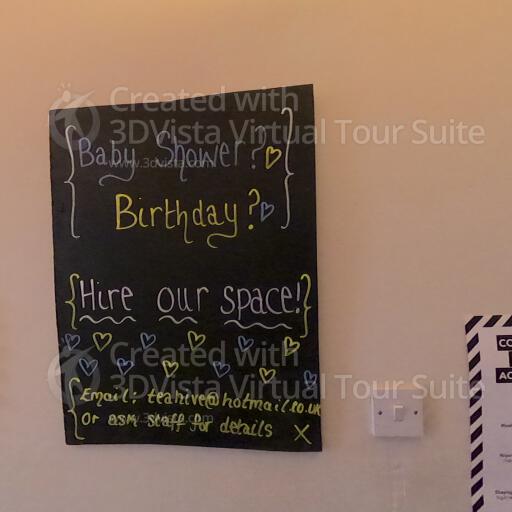 Created with
3DVista Virtual Tour Suite
www.3dvista.com
Baby Shower?
Birthday?
Hire our space!
Created with
3DVista Virtual Tour Suite
www.3dvista.com
Email: teahive@hotmail.co.uk
Or ask staff for details X